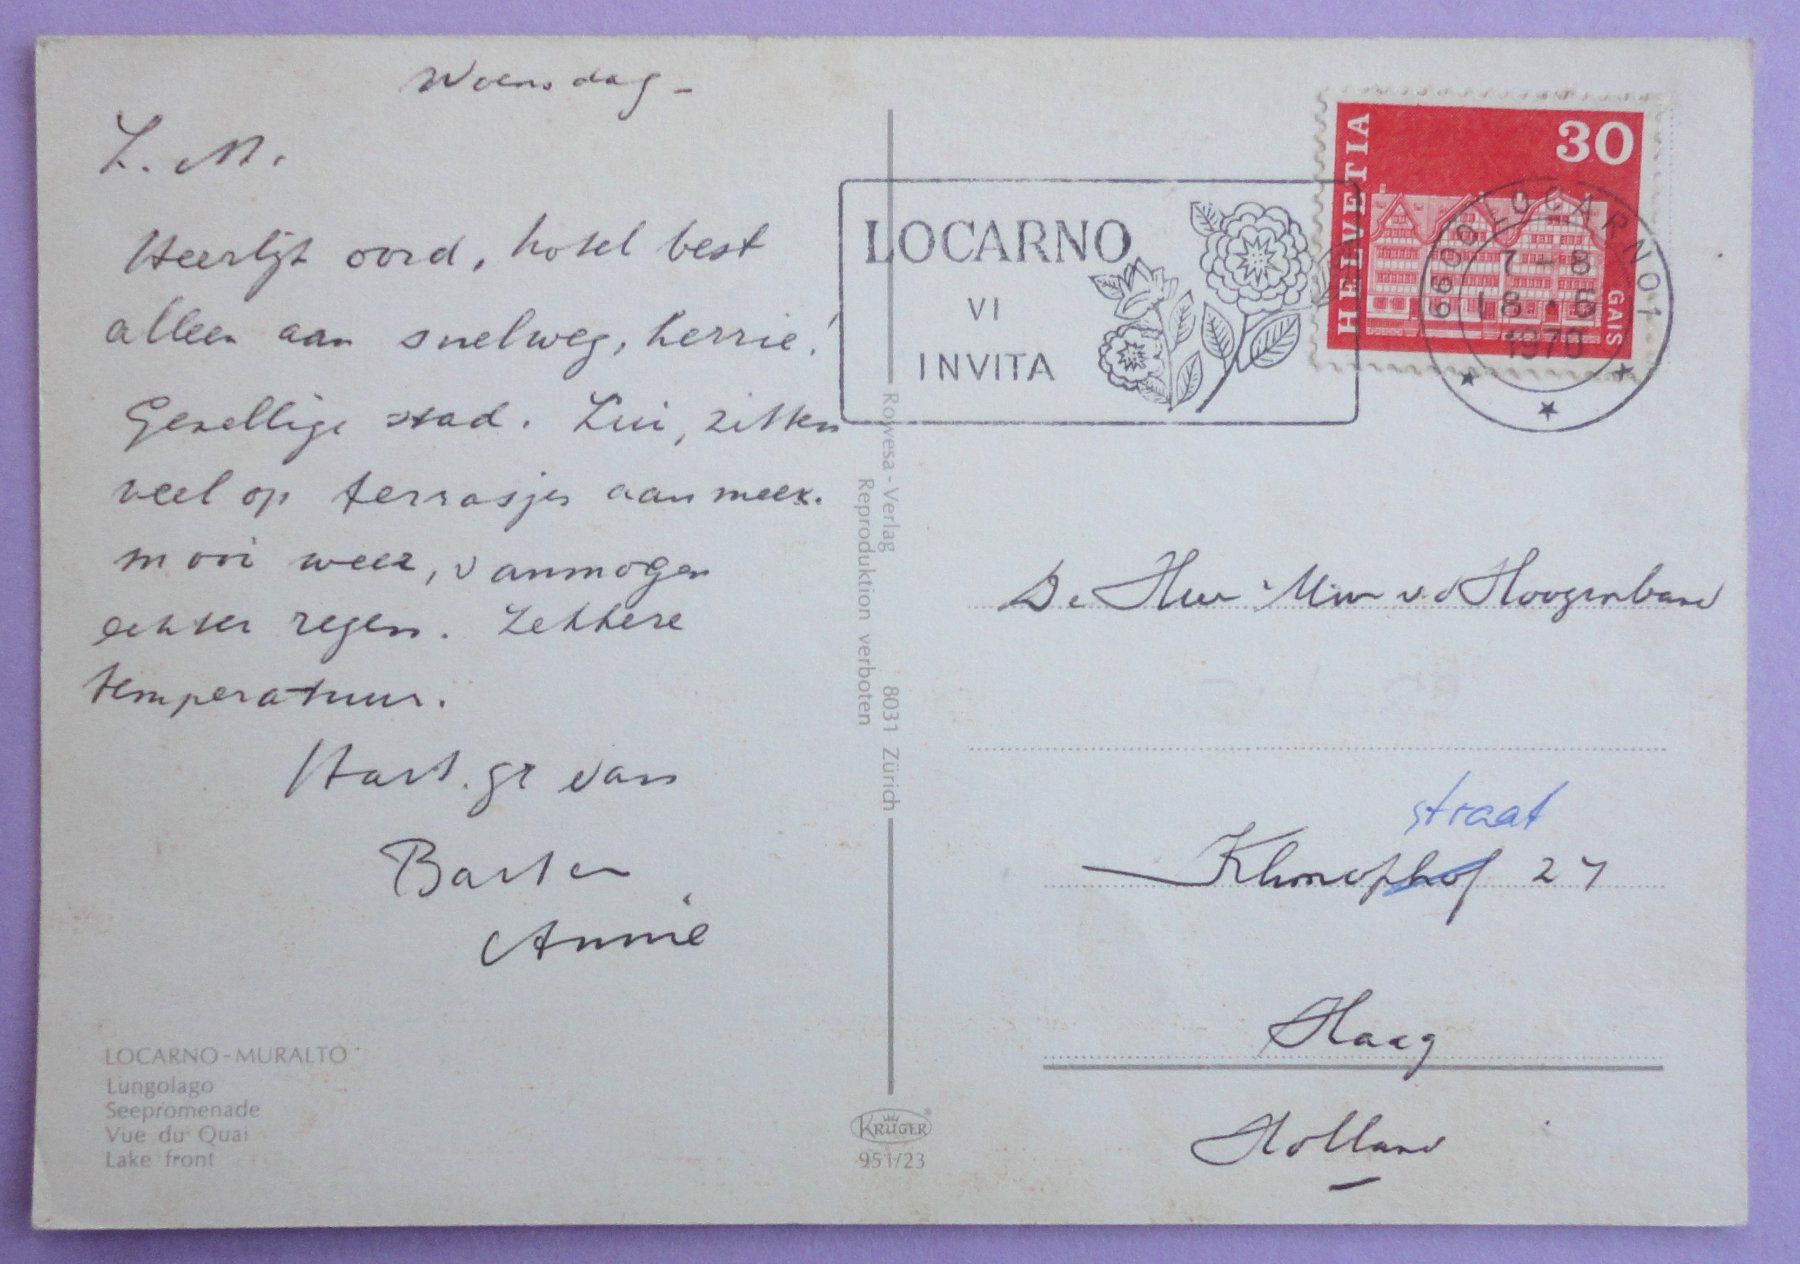 Woensdag -
L. M.
Heerlijk oord, hotel best
alleen aan snelweg, herrie!
Gezellige stad. Lui, zitten
veel op terrasjes aan meer.
mooi weer, vanmorgen
echter regen. Lekkere
temperatuur.
Hart. gr van
Annie
LOCARNO-MURALTO
Lungolago
Seepromenade
Vue du Quai
Lake front
Rowesa-Verlag 8031 Zürich
Reproduktion verboten
KRÜGER
951/23
LOCARNO
VI
INVITA
HELVETIA
30
GAIS
6600 LOCARNO 1
7-8
18.6
1970
De Heer Wim v d Hoogenband
straat
27
Haag
Holland